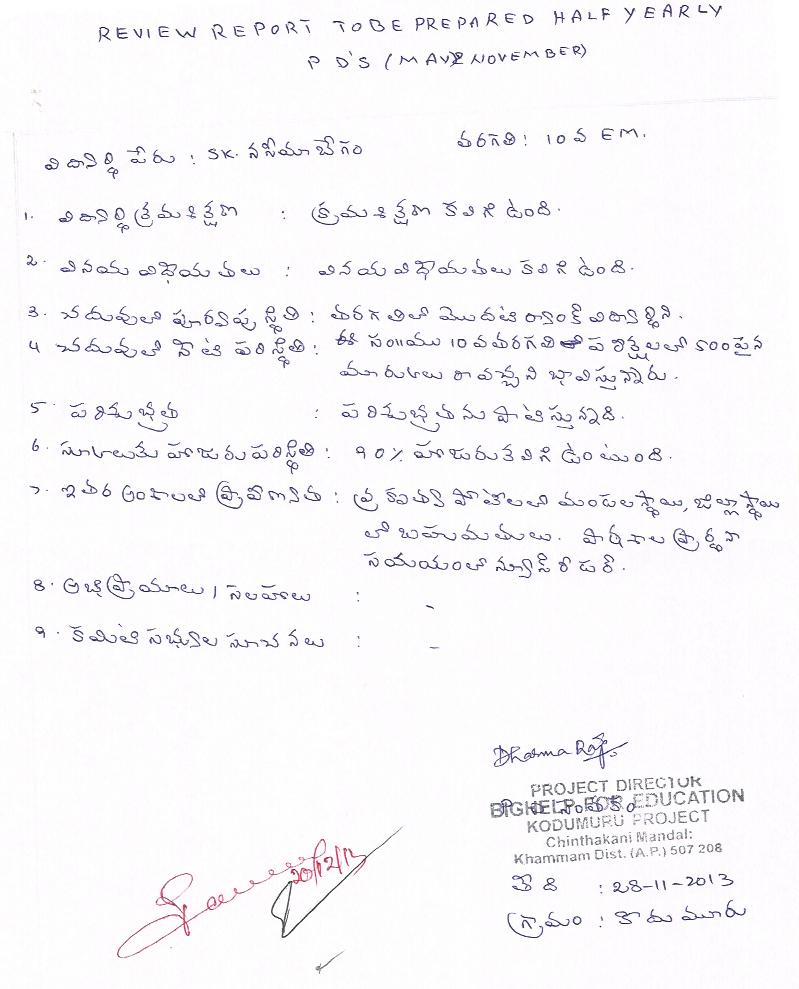 REVIEW REPORT TO BE PREPARED HALF YEARLY
P D'S (MAY& NOVEMBER)
విద్యార్థి పేరు : SK. నసీమా బేగం తరగతి : 10 వ EM.
1. విద్యార్థి క్రమశిక్షణ : క్రమశిక్షణ కలిగి ఉంది.
2. వినయ విధేయతలు : వినయ విధేయతలు కలిగి ఉంది.
3. చదువులో పూర్వపు స్థితి : తరగతిలో మొదటి ర్యాంక్ విద్యార్థిని.
4 చదువులో నేటి పరిస్థితి : ఈ సం॥ము 10 వ తరగతి పరీక్షలలో 500 పైన
మార్కులు రావచ్చని భావిస్తున్నారు.
5. పరిశుభ్రత : పరిశుభ్రతను పాటిస్తున్నాది.
6. స్కూలుకు హాజరు పరిస్థితి : 90% హాజరు కలిగి ఉంటుంది.
7. ఇతర అంశాలలో ప్రావీణ్యత : వ్రకృత్వ పోటీలలో మండలస్థాయి, జిల్లాస్థాయి
లో బహుమతులు. పాఠశాల ప్రార్థనా
సమయంలో న్యూస్ రీడర్.
8. అభిప్రాయాలు / సలహాలు : -
9. కమిటీ సభ్యుల సూచనలు : -
Dharma Raju
PROJECT DIRECTOR
BIGHELP FOR EDUCATION
KODUMURU PROJECT
Chinthakani Mandal:
Khammam Dist. (A.P.) 507 208
20/12/13
తేది : 28-11-2013
గ్రామం : కొదుమూరు